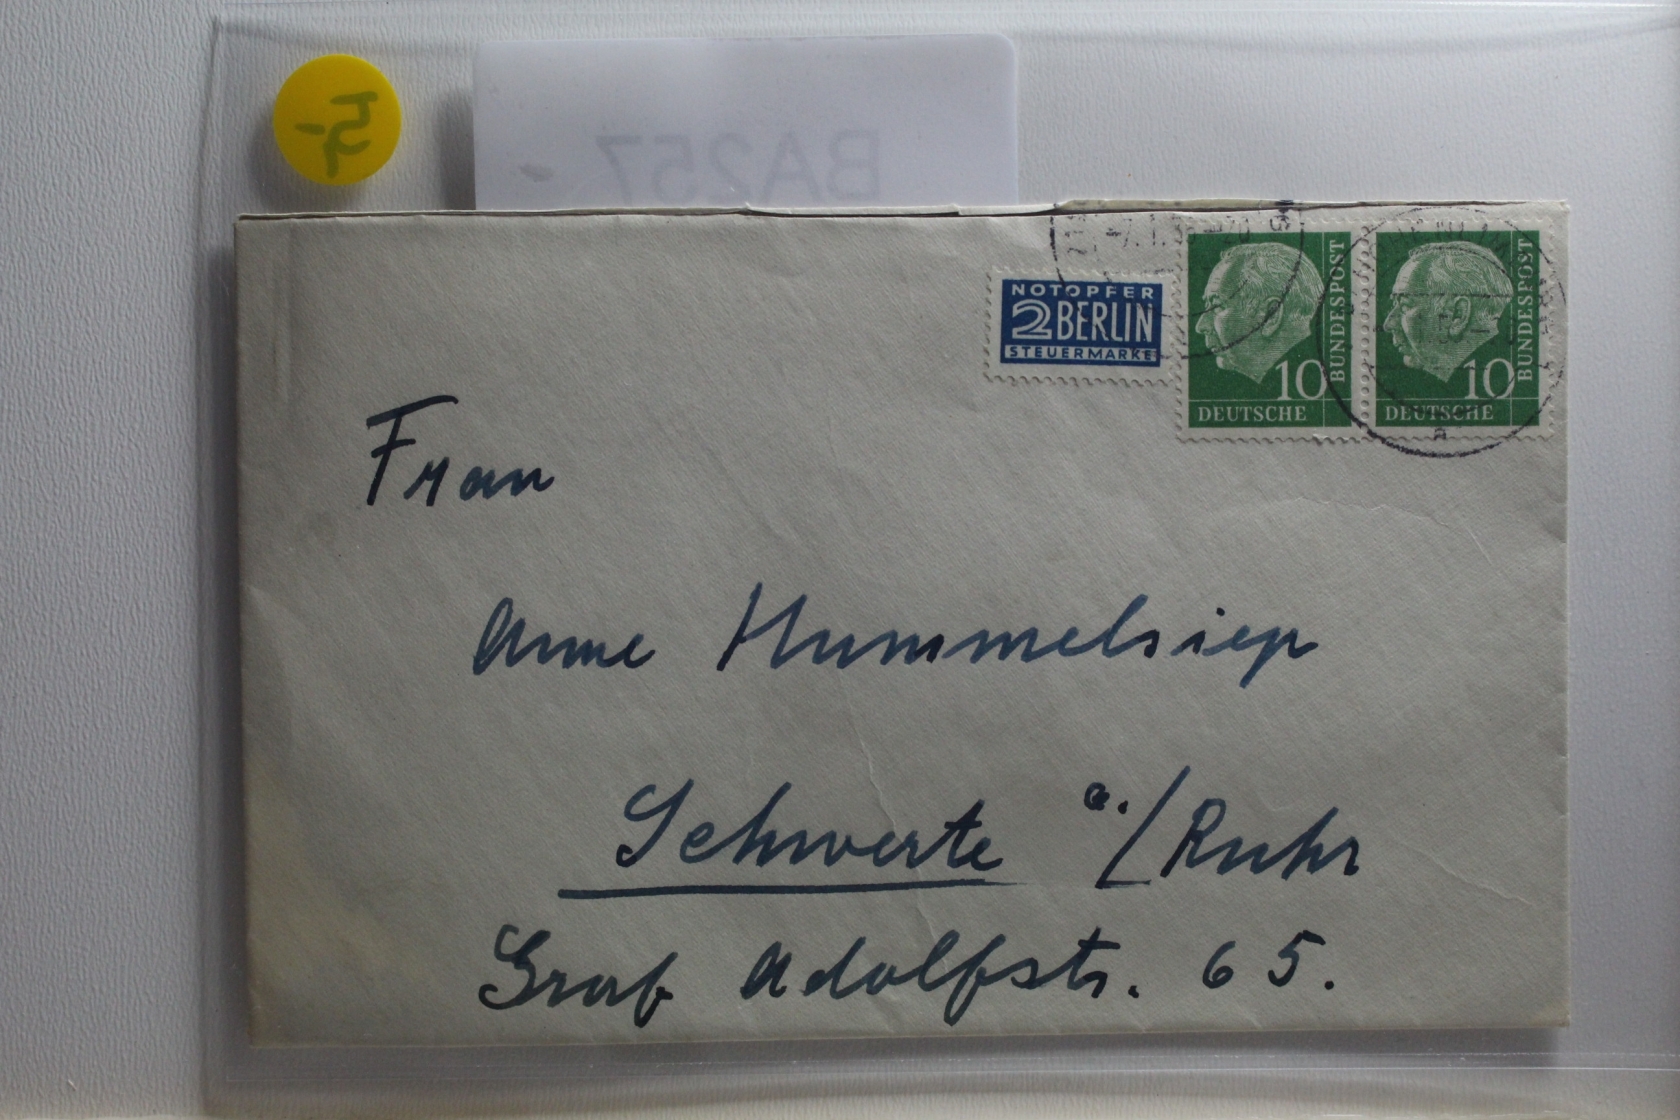 5,-
BA257-
NOTOPFER
2 BERLIN
STEUERMARKE
10
BUNDESPOST
DEUTSCHE
10
BUNDESPOST
DEUTSCHE
a
Frau
Anne Hummelsiep
Schwerte a./Ruhr
Graf Adolfstr. 65.